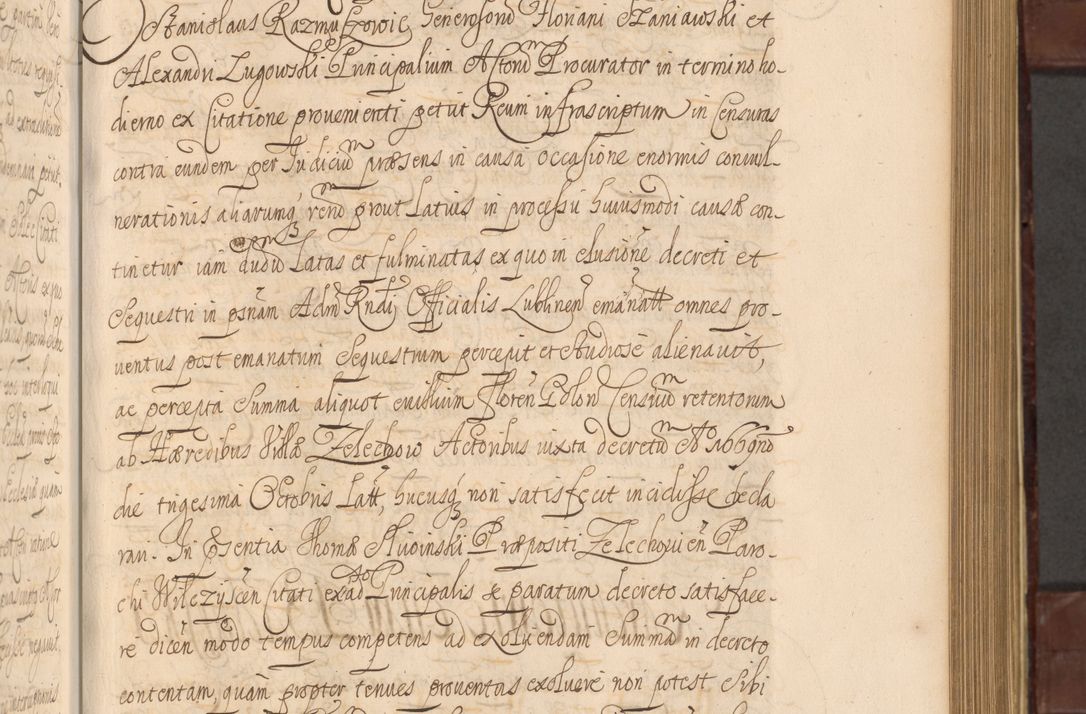 Stanislaus Razmu Zowic Generosorū Floriani Szaniawski et
Alexandri Lugowski Principalium Actorū Procurator in termino ho-
dierno ex Citatione provenienti petiit Reum infrascriptum in Censuras
contra eundem per Judiciū præsens in causa occasione enormis convul-
nerationis aliarumq́ rerū prout latius in processu huiusmodi causæ con-
tinetur iam dudū Latas et fulminatas, ex quo in elusione decreti et
Sequestri in psnam Adm Rndi Officialis Lublinen emanatt omnes pro-
ventus post emanatum Sequestrum percepit et studiose alienavit,
ac percepta Summa aliquot Floren Polon Censuū retentorum
ab Hæredibus Villæ Zelechow Actoribus iuxta decretū
die trigesima Octobris Latt, hucusq́ non satisfecit incidisse decla
rari. In Psentia Thomæ Præpositi Zelechovien Paro-
chi Wilczyscen Citati ex ad Principalis se paratum decreto satisface-
re dicen modo tempus competens ad exolvendam Summā in decreto
contentam, quam propter tenues proventus exoluere non potest Sibi